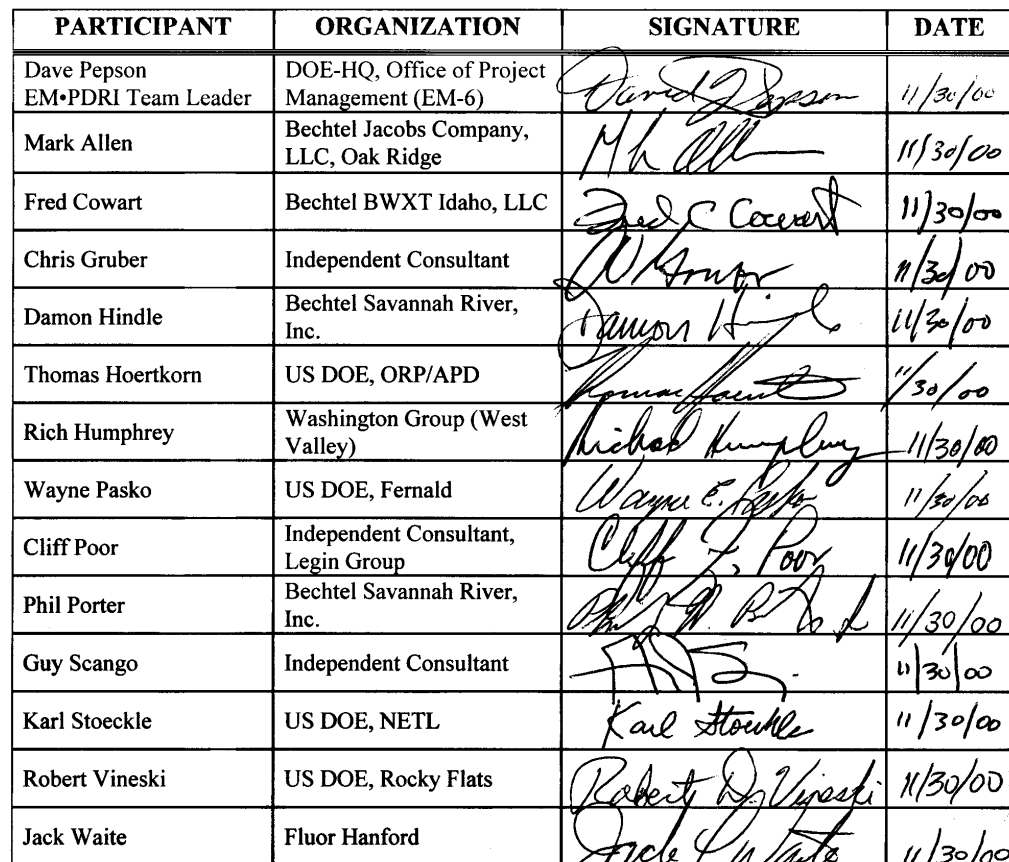 PARTICIPANT ORGANIZATION SIGNATURE DATE
Dave Pepson DOE-HQ, Office of Project
EM•PDRI Team Leader Management (EM-6) David Pepson 11/30/00
Mark Allen Bechtel Jacobs Company,
LLC, Oak Ridge 11/30/00
Fred Cowart Bechtel BWXT Idaho, LLC Fred C Cowart 11/30/00
Chris Gruber Independent Consultant 11/30/00
Damon Hindle Bechtel Savannah River,
Inc. Damon 11/30/00
Thomas Hoertkorn US DOE, ORP/APD Thomas 11/30/00
Rich Humphrey Washington Group (West
Valley) Richard Humphrey 11/30/00
Wayne Pasko US DOE, Fernald Wayne E. Pasko 11/30/00
Cliff Poor Independent Consultant,
Legin Group Cliff F. Poor 11/30/00
Phil Porter Bechtel Savannah River,
Inc. 11/30/00
Guy Scango Independent Consultant 11/30/00
Karl Stoeckle US DOE, NETL Karl Stoeckle 11/30/00
Robert Vineski US DOE, Rocky Flats Robert D. Vineski 11/30/00
Jack Waite Fluor Hanford Jack Waite 11/30/00